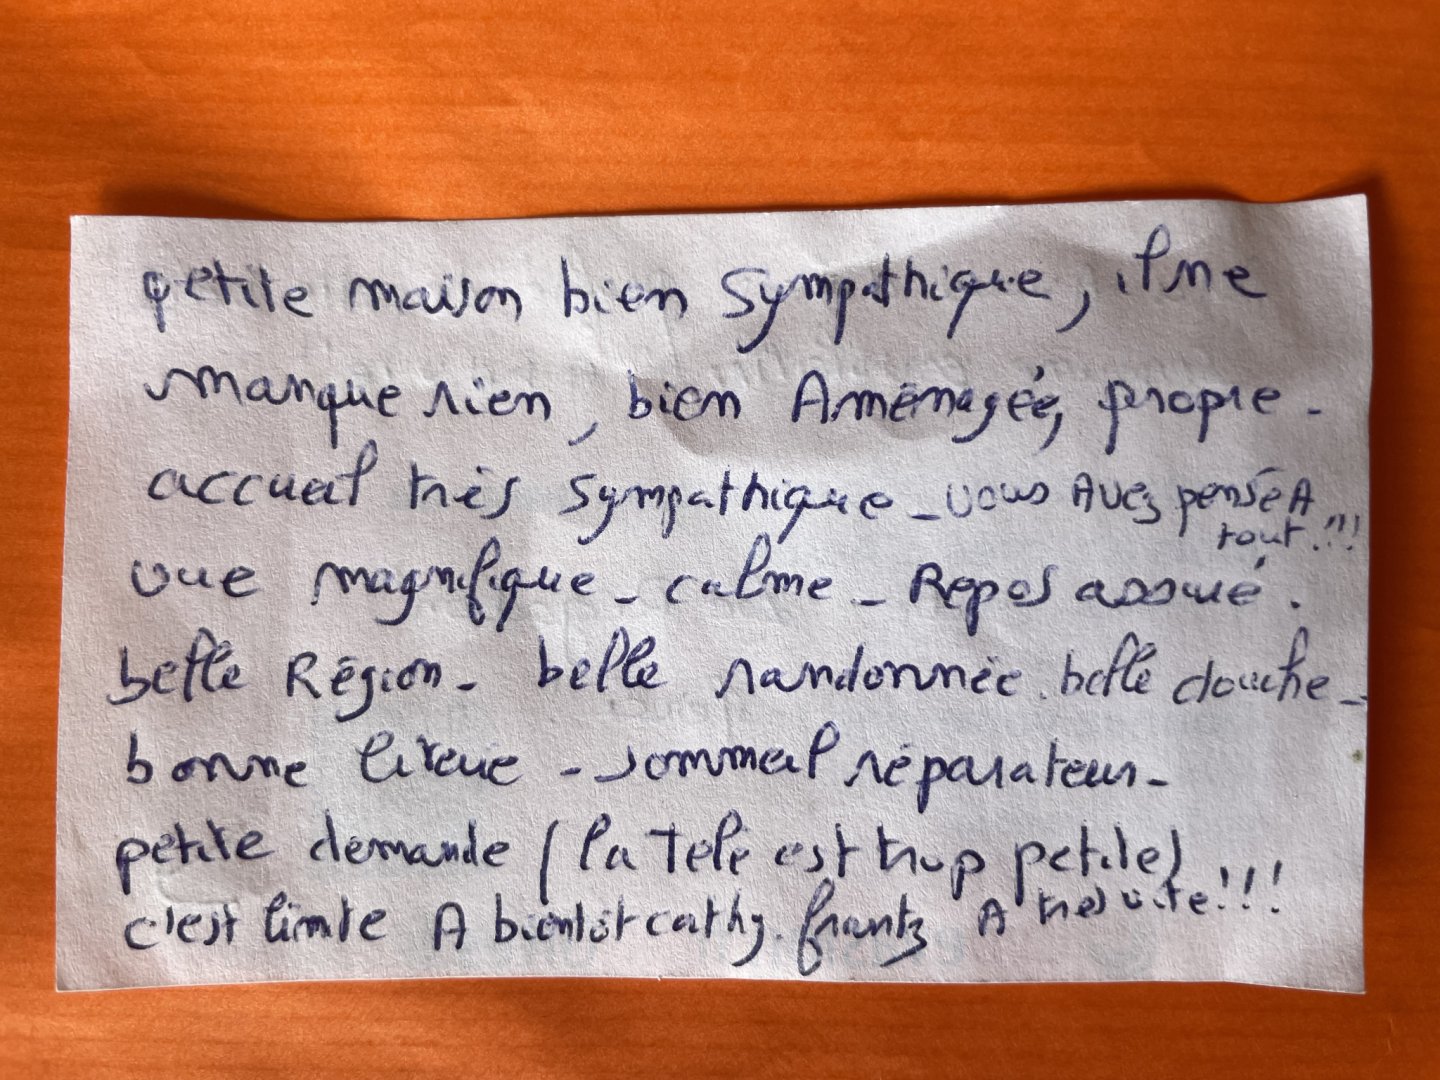 petite maison bien sympathique, il ne
manque rien, bien Aménagée, propre -
accueil très sympathique - vous Avez pensé A
tout!!!
vue magnifique - calme - Repos assuré.
belle Région - belle randonnée. belle douche -
bonne literie - sommeil réparateur -
petite demande (la Télé est trop petite)
c'est limite A bientôt cathy. frantz A très vite!!!